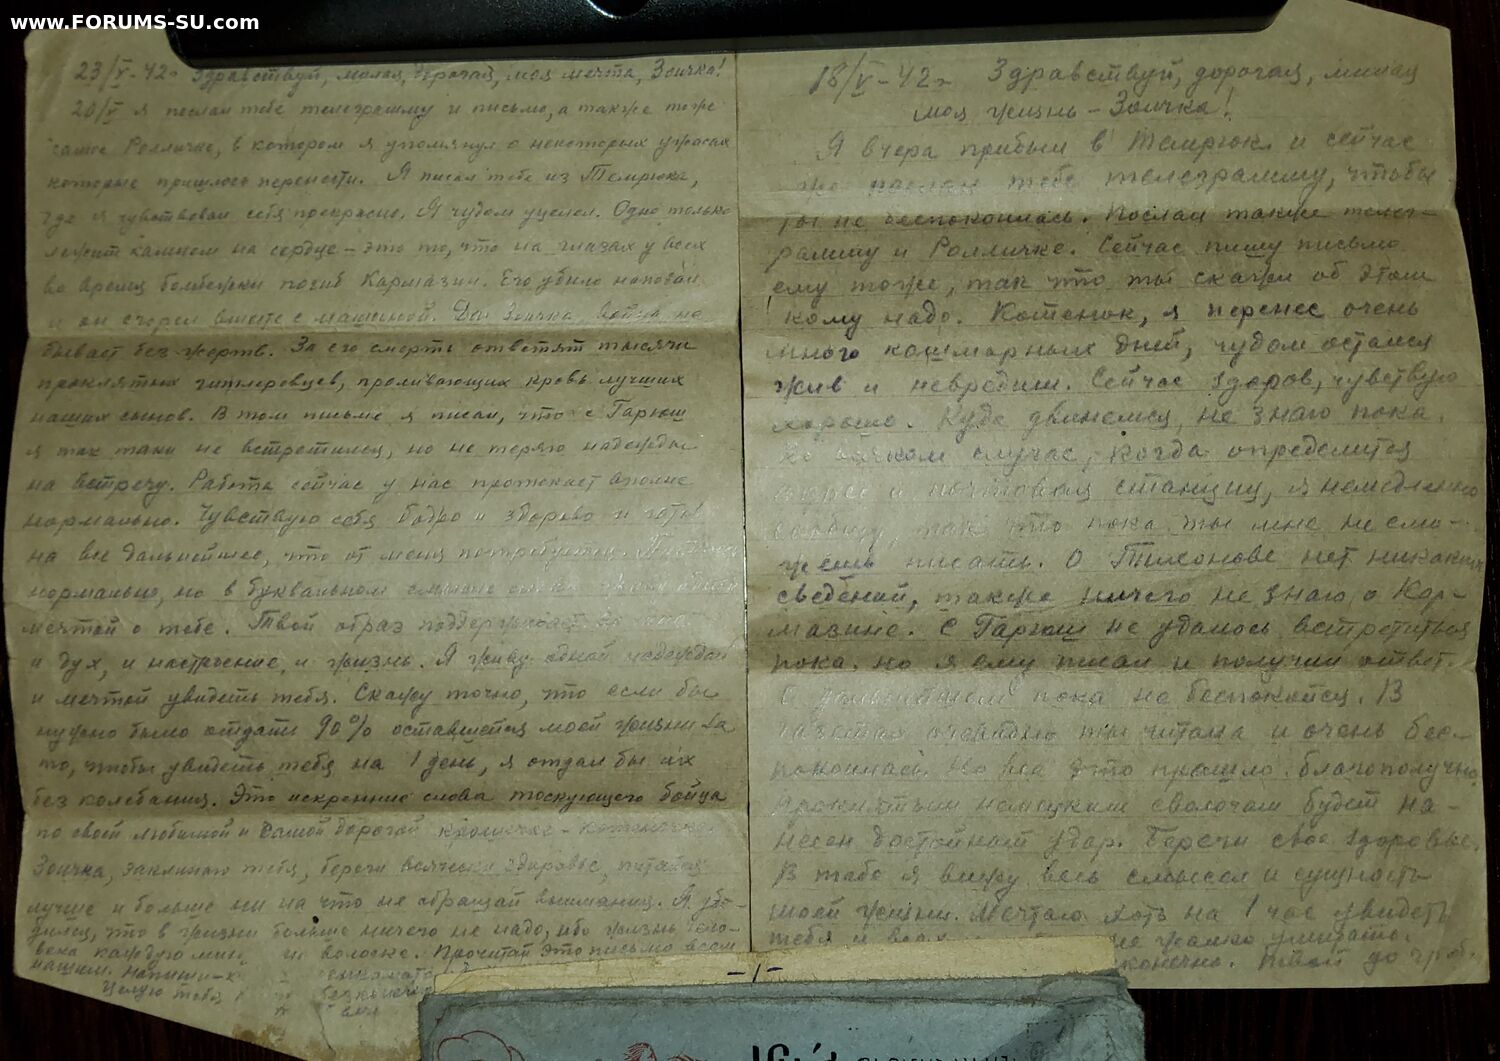 www.FORUMS-SU.com
23/V-42г Здравствуй, милая, дорогая, моя мечта, Зоичка!
20/V я послал тебе телеграмму и письмо, а также тоже
самое Ромичке, в котором я упомянул о некоторых ужасах
которые пришлось перенести. Я писал тебе из Темрюка,
где я чувствовал себя прекрасно. Я чудом уцелел. Одно только
лежит камнем на сердце - это то, что на глазах у всех
во время бомбежки погиб Кармазин. Его убило наповал
и он сгорел вместе с машиной. Да Зоичка, война не
бывает без жертв. За его смерть ответят тысячи
проклятых гитлеровцев, проливающих кровь лучших
наших сынов. В том письме я писал, что с Гарюш
я так таки не встретился, но не теряю надежды
на встречу. Работа сейчас у нас протекает вполне
нормально. Чувствую себя бодро и здорово и готов
на все дальнейшее, что от меня потребуется.
нормально, но в буквальном смысле одной
мечтой о тебе. Твой образ поддерживает во мне
и дух, и настроение, и жизнь. Я живу одной надеждой
и мечтой увидеть тебя. Скажу точно, что если бы
нужно было отдать 90% оставшейся моей жизни за
то, чтобы увидеть тебя на 1 день, я отдал бы их
без колебания. Это искренние слова тоскующего бойца
по своей любимой и самой дорогой
Зоичка, заклинаю тебя, береги всячески здоровье, питайся
лучше и больше ни на что не обращай внимания. Я убе-
дился, что в жизни больше ничего не надо, ибо жизнь чело-
века каждую мин на волоске. Прочитай это письмо всем
нашим. Напиши
Целую тебя бесконечно
18/V-42г Здравствуй, дорогая, милая
моя жизнь - Зоичка!
Я вчера прибыл в Темрюк и сейчас
же послал тебе телеграмму, чтобы
ты не беспокоилась. Послал также телег-
рамму и Ромичке. Сейчас пишу письмо
ему тоже, так что ты скажи об этом
кому надо. Котенок, я перенес очень
много кошмарных дней, чудом остался
жив и невредим. Сейчас здоров, чувствую
хорошо. Куда двинемся, не знаю пока.
Во всяком случае, когда определится
адрес и почтовая станция, я немедленно
сообщу, так что пока ты мне не смо-
жешь писать. О Тихонове нет никаких
сведений, также ничего не знаю о Кар-
мазине. С Гарюш не удалось встретиться
пока, но я ему писал и получил ответ.
О дальнейшем пока не беспокойся. В
газетах очевидно ты читала и очень бес-
покоилась. Но все это прошло благополучно.
Проклятым немецким сволочам будет на-
несен достойный удар. Береги свое здоровье.
В тебе я вижу весь смысл и сущность
моей жизни. Мечтаю хоть на 1 час увидеть
тебя и всех не жалко умирать.
конечно. Твой до гроб.
-1-